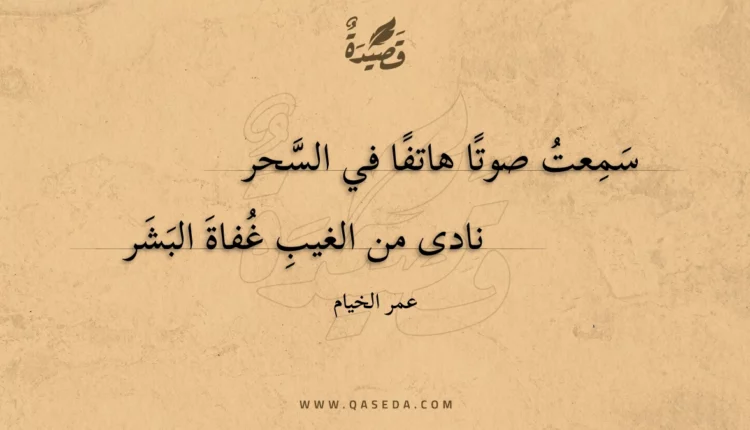 قَصِيْدَةٌ
سَمِعتُ صوتًا هاتفًا في السَّحر
نادى من الغيبِ غُفاةَ البَشَر
عمر الخيام
WWW.QASEDA.COM